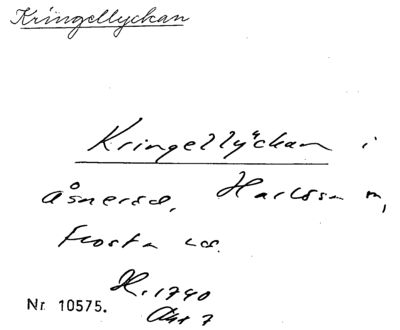 Kringellyckan
Kringellyckan i
Åsnered, Harlösa sn,
Frosta hd.
H. 1740
Akt 7
Nr 10575.